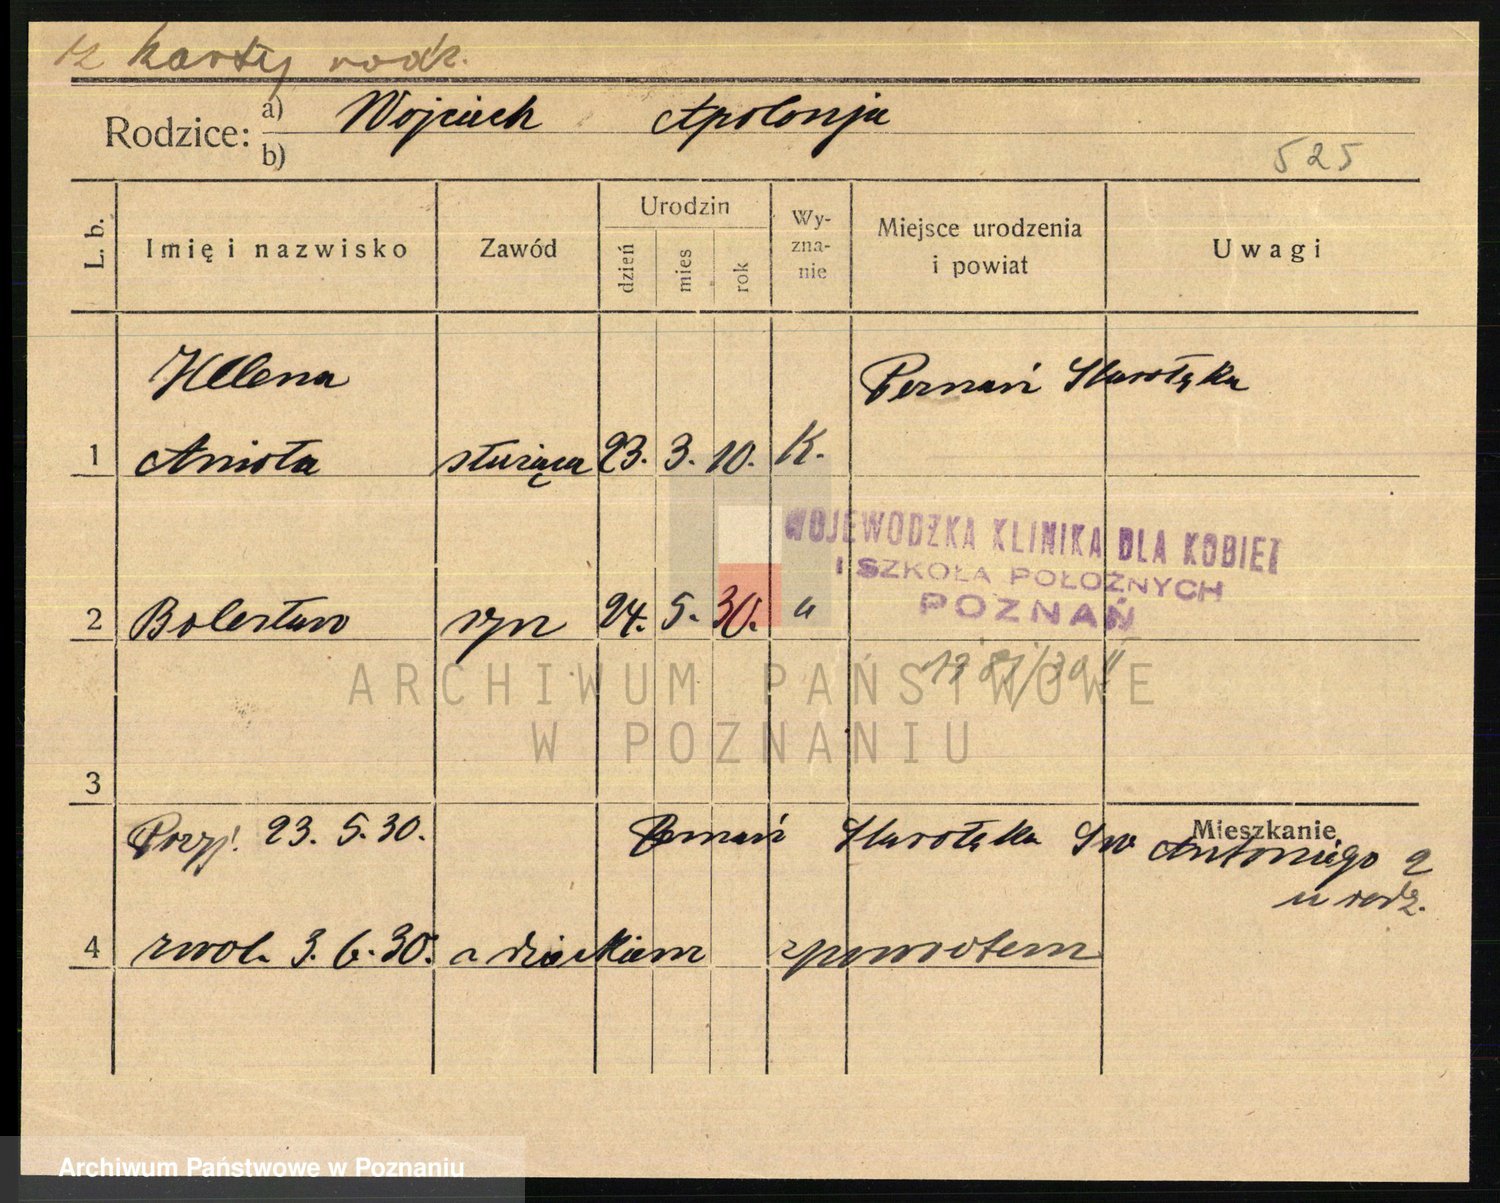 z karty rodz.
Rodzice: a) Wojciech Apolonja
b)
525
L. b. Imię i nazwisko Zawód Urodzin dzień mies rok Wy-zna-nie Miejsce urodzenia i powiat Uwagi
Helena Poznań Starołęka
1 Anioła służąca 23. 3. 10. K.
WOJEWÓDZKA KLINIKA DLA KOBIET
I SZKOŁA POŁOŻNYCH
POZNAŃ
2 Bolesław syn 24. 5. 30. "
ARCHIWUM PAŃSTWOWE
W POZNANIU
3
Mieszkanie
Przyj. 23. 5. 30. Poznań Starołęka Św Antoniego 2
u rodz.
4 zwol. 3. 6. 30. z dzieckiem z powrotem
Archiwum Państwowe w Poznaniu